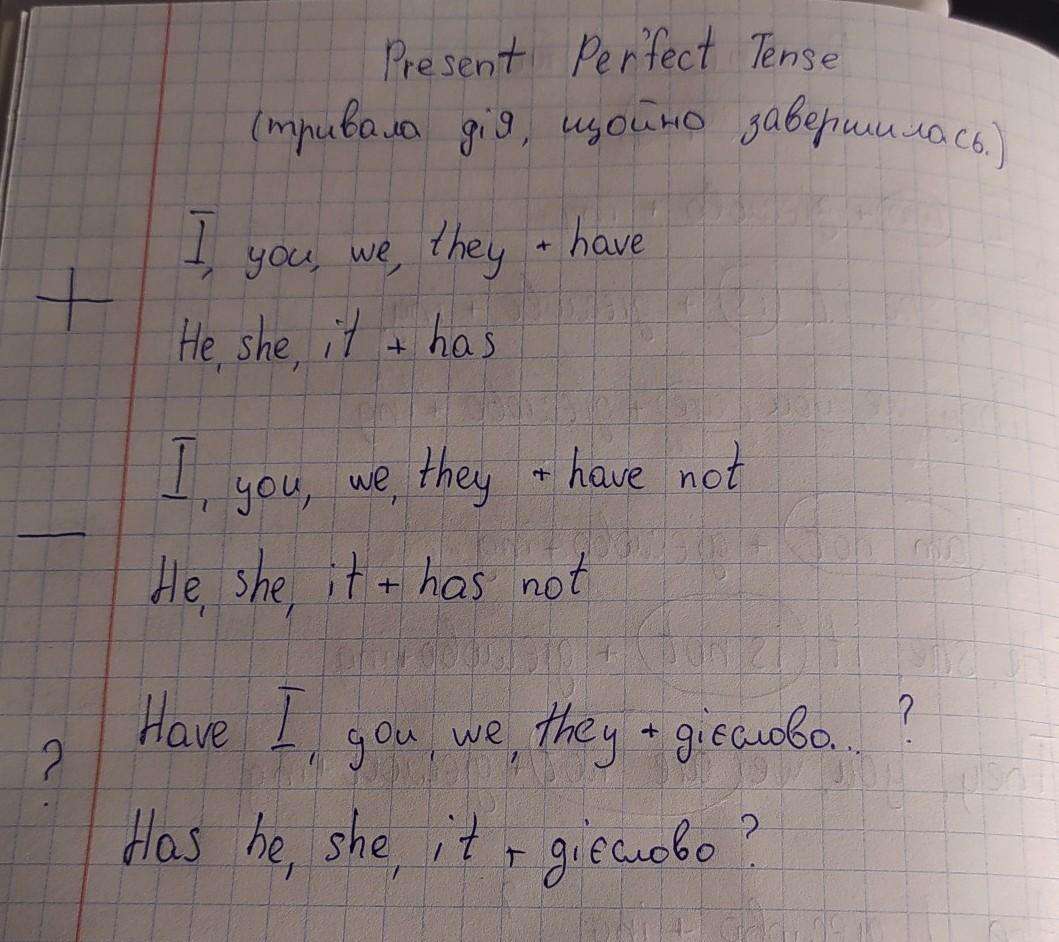 Present Perfect Tense
(тривала дія, щойно завершилась.)
I, you, we, they + have
+
He, she, it + has
I, you, we, they + have not
—
He, she, it + has not
Have I, you, we, they + дієслово... ?
?
Has he, she, it + дієслово ?